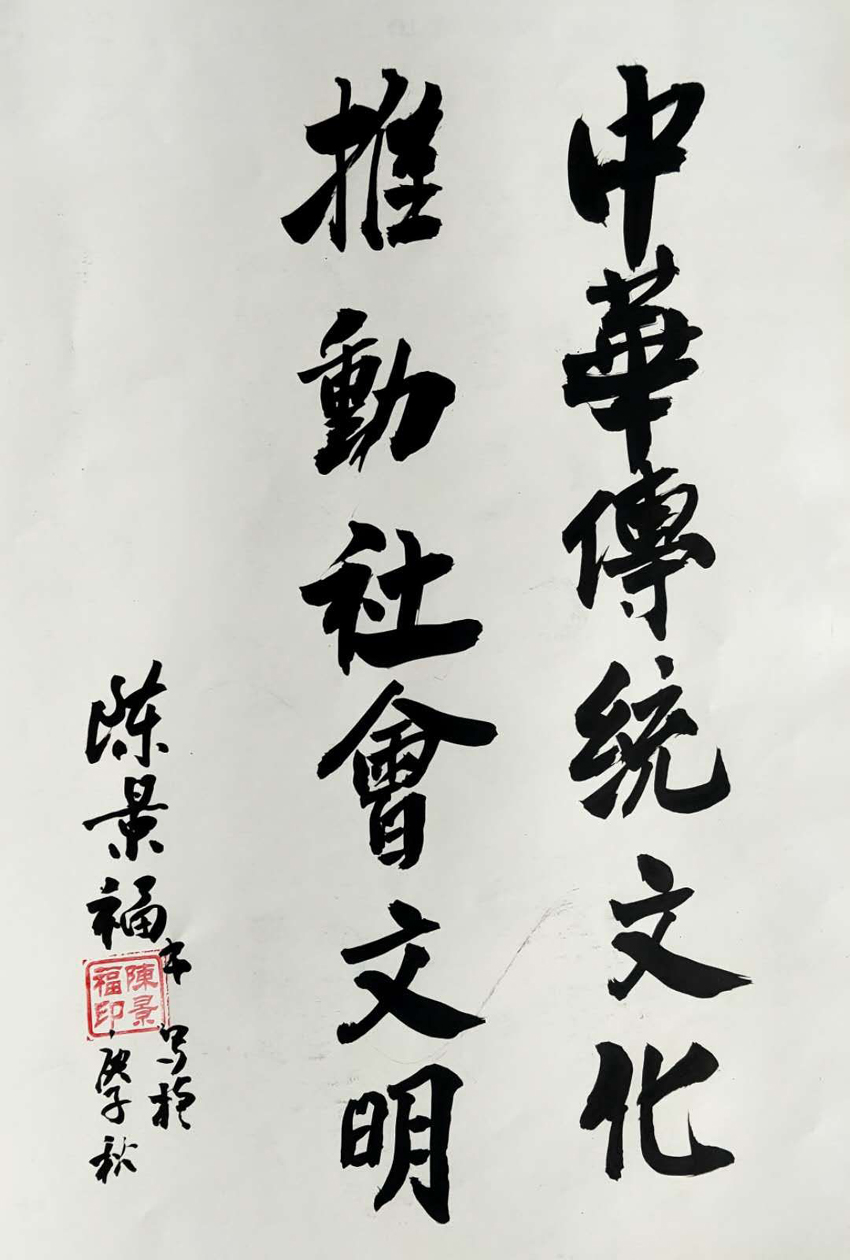 中華傳統文化
推動社會文明
陈景福
庚子秋
陳景福印